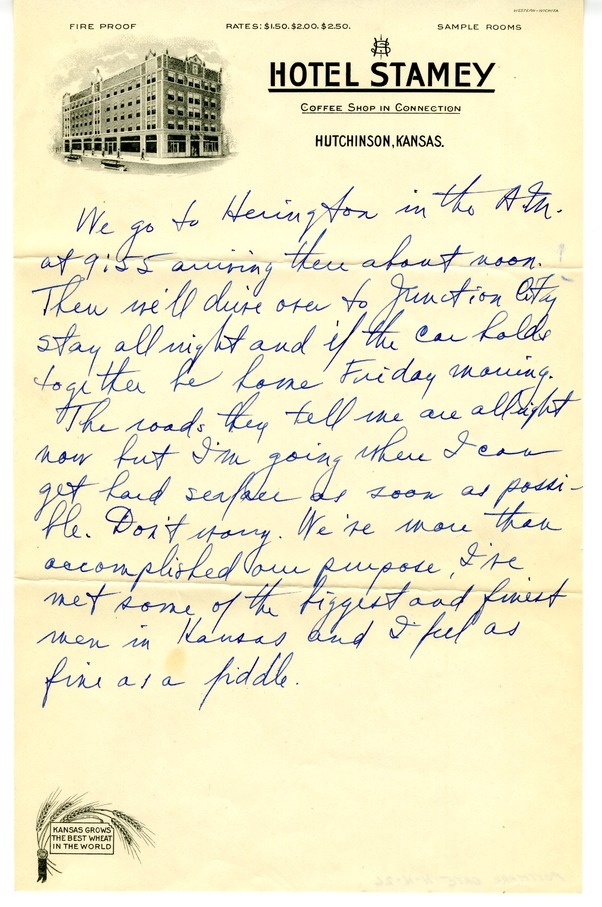 WESTERN-WICHITA
FIRE PROOF RATES: $1.50. $2.00. $2.50. SAMPLE ROOMS
HOTEL STAMEY
COFFEE SHOP IN CONNECTION
HUTCHINSON, KANSAS.
We go to Herington in the A.M.
at 9:55 arriving there about noon.
Then we'll drive over to Junction City
stay all night and if the car holds
together be home Friday morning.
The roads they tell me are allright
now but I'm going where I can
get hard surface as soon as possi-
ble. Don't worry. We've more than
accomplished our purpose, I've
met some of the biggest and finest
men in Kansas and I feel as
fine as a fiddle.
KANSAS GROWS
THE BEST WHEAT
IN THE WORLD